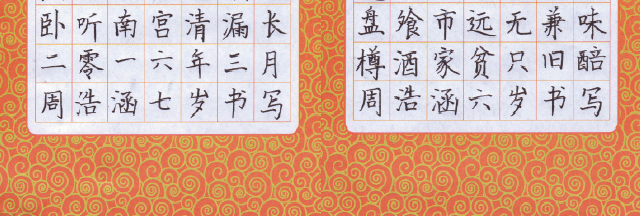 卧听南宫清漏长
二零一六年三月
周浩涵七岁书写
盘飧市远无兼味
樽酒家贫只旧醅
周浩涵六岁书写